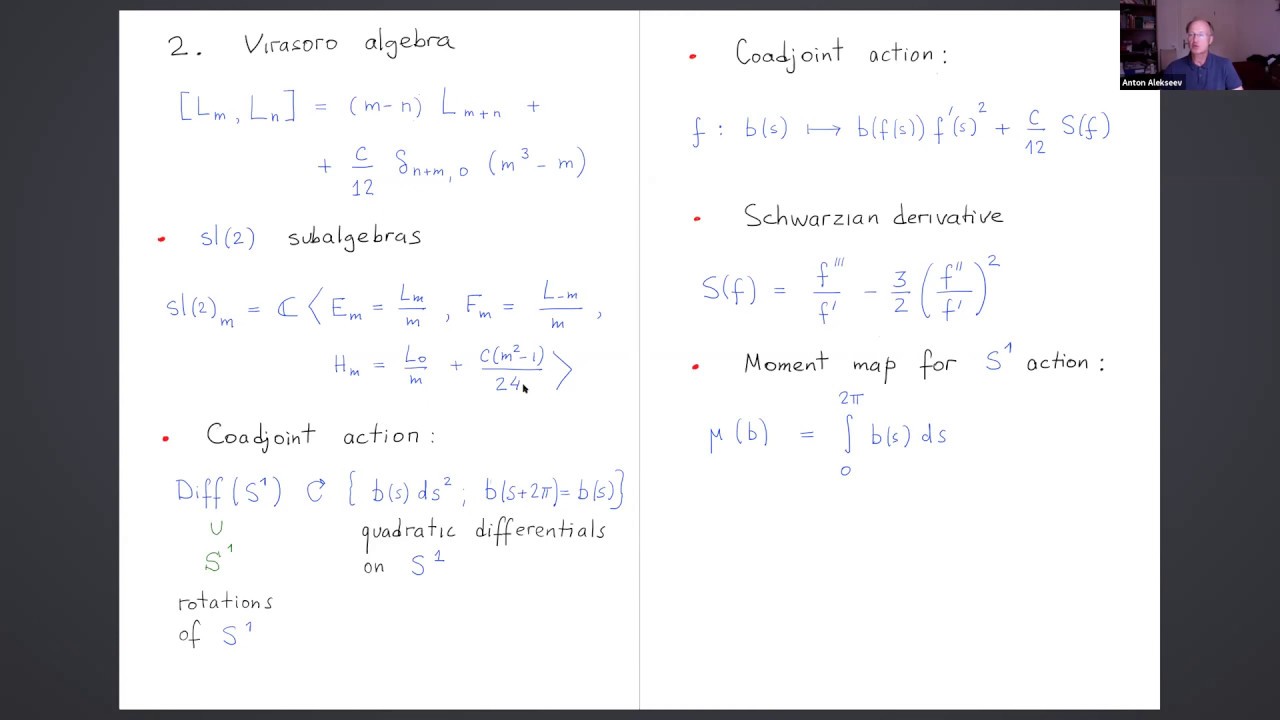 2. Virasoro algebra
[L_m, L_n] = (m-n) L_{m+n} +
+ \frac{c}{12} δ_{n+m, 0} (m^3 - m)
• sl(2) subalgebras
sl(2)_m = ℂ ⟨ E_m = \frac{L_m}{m}, F_m = \frac{L_{-m}}{m},
H_m = \frac{L_0}{m} + \frac{c(m^2-1)}{24} ⟩
• Coadjoint action:
Diff(S^1) ↻ { b(s) ds^2 ; b(s+2π) = b(s) }
∪ quadratic differentials
S^1 on S^1
rotations
of S^1
• Coadjoint action:
f : b(s) ⟼ b(f(s)) f'(s)^2 + \frac{c}{12} S(f)
• Schwarzian derivative
S(f) = \frac{f'''}{f'} - \frac{3}{2} (\frac{f''}{f'})^2
• Moment map for S^1 action:
μ(b) = ∫_0^{2π} b(s) ds
Anton Alekseev